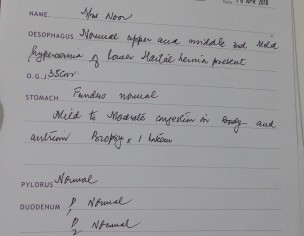 Date 10 APR 2018
NAME. Noor
OESOPHAGUS Normal upper and middle 3rd Mild
hyperaemia of Lower Hiatal hernia present
O.G.J 35cm
STOMACH Fundus normal
Mild to Moderate congestion in body and
antrum Biopsy x 1 taken
PYLORUS Normal
DUODENUM P1 Normal
P2 Normal